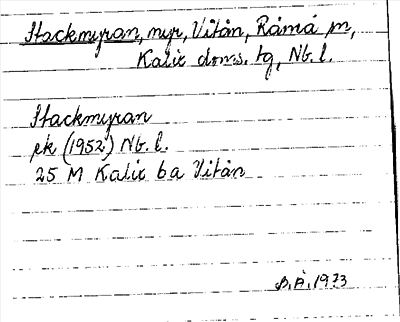 Stackmyran, myr, Vitån, Råneå sn,
Kalix doms. tg, Nb. l.
Stackmyran
ek (1952) Nb. l.
25 M Kalix 6a Vitån
B. Å. 1973